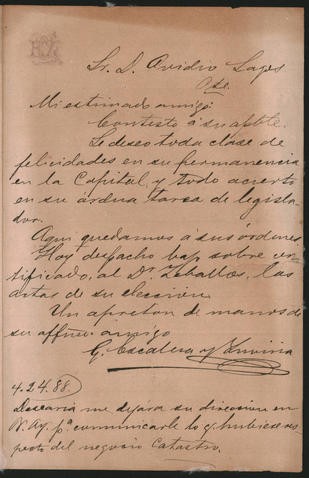 Sr. D. Ovidio Lagos
Pte.
Mi estimado amigo:
Contesto á su apble.
Le deseo toda clase de
felicidades en su permanencia
en la Capital, y todo acierto
en su árdua tarea de legisla-
dor.
Aquí quedamos á sus órdenes.
Hoy despacho bajo sobre cer-
tificado, al Dr. Zeballos, las
actas de su elección.
Un apreton de manos de
su affmo. amigo
G. Escalera y Zuviría
4.24.88
Desearia me dejára su direccion en
B. Ay. pa. comunicarle lo q. hubiere res-
pecto del negocio Catastro.